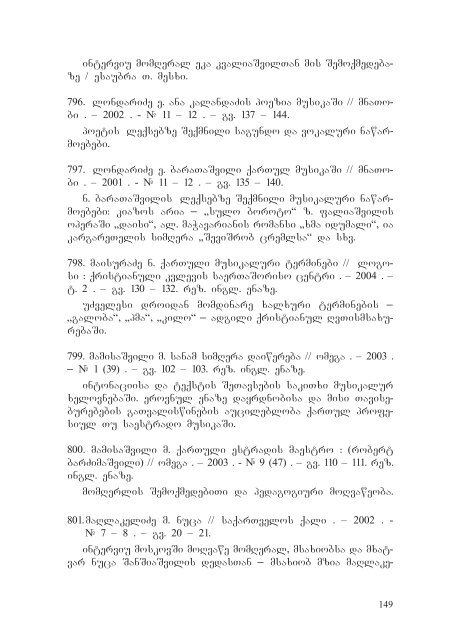 ინტერვიუ მომღერალ ეკა კვალიაშვილთან მის შემოქმედება-
ზე / ესაუბრა თ. მესხი.
796. ლონდარიძე ე. ანა კალანდაძის პოეზია მუსიკაში // მნათო-
ბი . – 2002 . - № 11 – 12 . – გვ. 137 – 144.
პოეტის ლექსებზე შექმნილი საგუნდო და ვოკალური ნაწარ-
მოებები.
797. ლონდარიძე ე. ბარათაშვილი ქართულ მუსიკაში // მნათო-
ბი . – 2001 . - № 11 – 12 . – გვ. 135 – 140.
ნ. ბარათაშვილის ლექსებზე შექმნილი მუსიკალური ნაწარ-
მოებები: კიაზოს არია – „სულო ბოროტო“ ზ. ფალიაშვილის
ოპერაში „დაისი“, ალ. მაჭავარიანის რომანსი „ხმა იდუმალი“, ია
კარგარეთელის სიმღერა „შევიშრობ ცრემლსა“ და სხვ.
798. მაისურაძე ნ. ქართული მუსიკალური ტერმინები // ლოგო-
სი : ქრისტიანული კვლევის საერთაშორისო ცენტრი . – 2004 . –
ტ. 2 . – გვ. 130 – 132. რეზ. ინგლ. ენაზე.
უძველესი დროიდან მომდინარე ხალხური ტერმინების –
„გალობა“, „ჰმა“, „კილო“ – ადგილი ქრისტიანულ ღვთისმსახუ-
რებაში.
799. მამისაშვილი მ. სანამ სიმღერა დაიწერება // ომეგა . – 2003 .
– № 1 (39) . – გვ. 102 – 103. რეზ. ინგლ. ენაზე.
ინტონაციისა და ტექსტის შეთავსების საკითხი მუსიკალურ
ხელოვნებაში. ეროვნულ ენაზე დაყრდნობისა და მისი თავისე-
ბურებების გათვალისწინების აუცილებლობა ქართულ პროფე-
სიულ თუ საესტრადო მუსიკაში.
800. მამისაშვილი მ. ქართული ესტრადის მაესტრო : (რობერტ
ბარძიმაშვილი) // ომეგა . – 2003 . - № 9 (47) . – გვ. 110 – 111. რეზ.
ინგლ. ენაზე.
მომღერლის შემოქმედებითი და პედაგოგიური მოღვაწეობა.
801.მაღლაკელიძე მ. ნუცა // საქართველოს ქალი . – 2002 . -
№ 7 – 8 . – გვ. 20 – 21.
ინტერვიუ მოსკოვში მოღვაწე მომღერალ, მსახიობსა და მხატ-
ვარ ნუცა შანშიაშვილის დედასთან – მსახიობ მზია მაღლაკე-
149